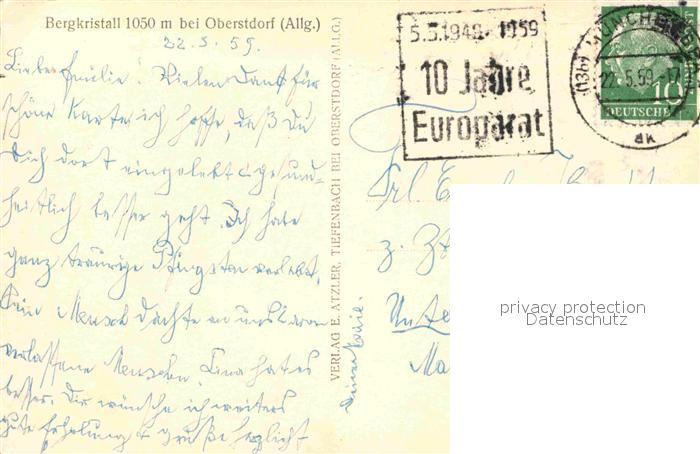 Bergkristall 1050 m bei Oberstdorf (Allg.)
22.5.59.
Liebe Emilie. Vielen Dank für
schöne Karte ich hoffe, daß Du
Dich dort eingelebt & gesund-
heitlich besser geht. Ich habe
ganz traurige Pfingsten verlebt,
kein Mensch dachte an uns
verlassene Menschen. Lina hat es
besser. Dir wünsche ich weiters
gute Erholung & grüße herzlich
Deine
VERLAG E. ATZLER, TIEFENBACH BEI OBERSTDORF (ALLG.)
5.5.1949-1959
10 Jahre
Europarat
(13b) MÜNCHEN
22.5.59.-17
dk
10
DEUTSCHE
Frl.
z. Zt.
Unte
Ma
privacy protection
Datenschutz